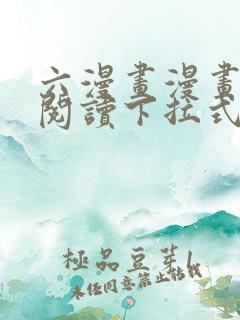 六漫畫漫畫
閱讀下拉式
極品豆芽1
未經同意禁止轉載